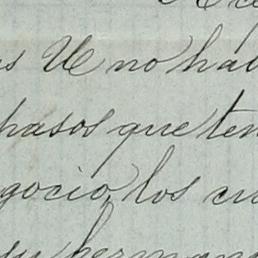 s Ue no hab
pasos que ten
gocio, los cu
su herman